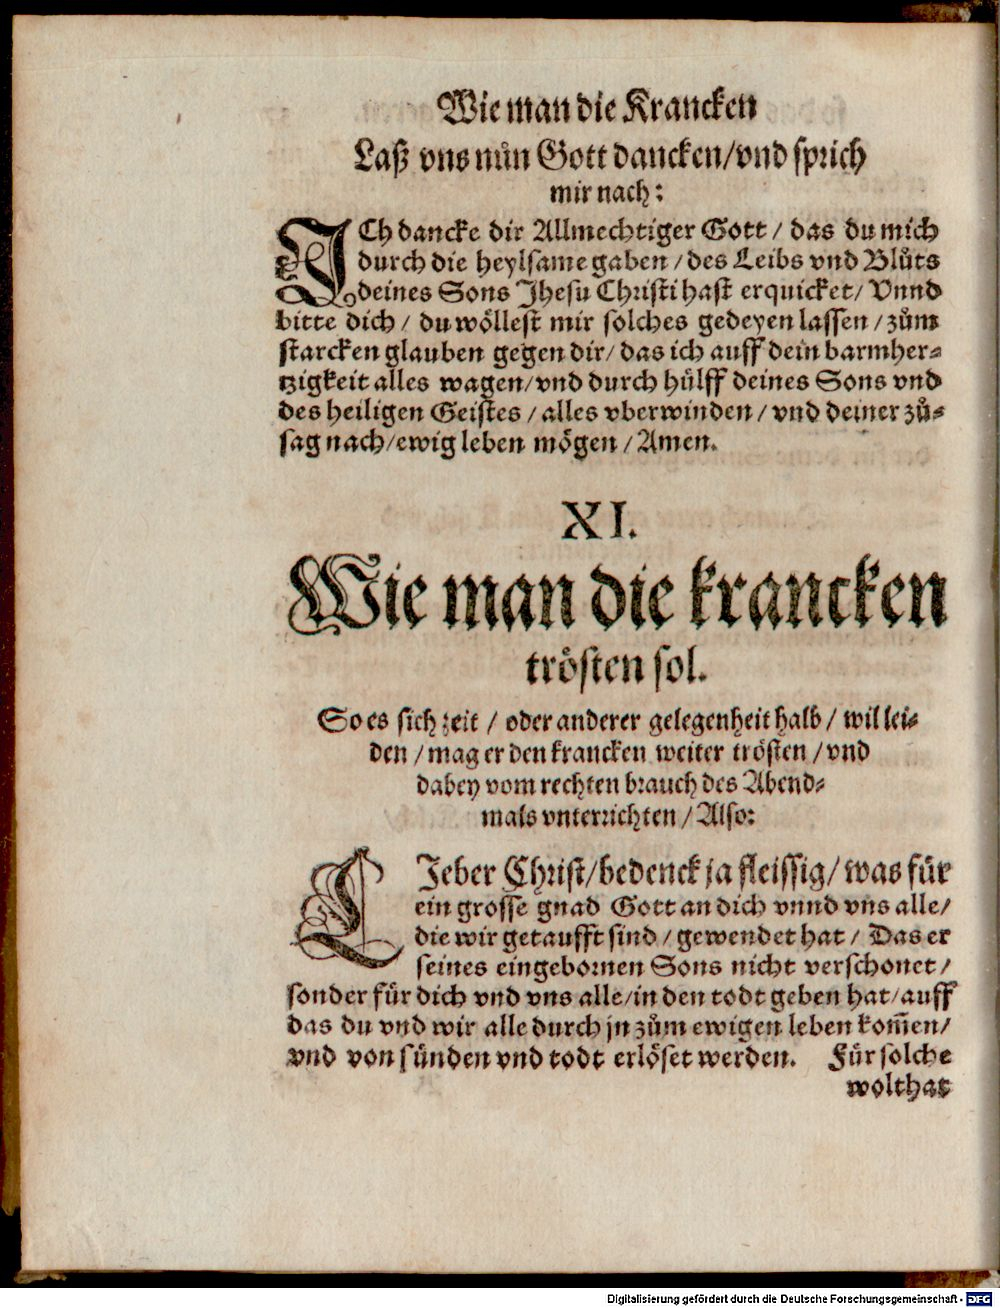 Wie man die Krancken
Laß vns nůn Gott dancken/vnd sprich
mir nach:
ICh dancke dir Allmechtiger Gott / das du mich
durch die heylsame gaben / des Leibs vnd Blůts
deines Sons Jhesu Christi hast erquicket/ Vnnd
bitte dich / du wöllest mir solches gedeyen lassen / zům
starcken glauben gegen dir/ das ich auff dein barmher⸗
tzigkeit alles wagen/vnd durch hülff deines Sons vnd
des heiligen Geistes / alles vberwinden / vnd deiner zů⸗
sag nach/ewig leben mögen / Amen.
XI.
Wie man die krancken
trösten sol.
So es sich zeit / oder anderer gelegenheit halb / wil lei⸗
den / mag er den krancken weiter trösten / vnd
dabey vom rechten brauch des Abend⸗
mals vnterrichten / Also:
LIeber Christ/bedenck ja fleissig/ was für
ein grosse gnad Gott an dich vnnd vns alle/
die wir getaufft sind / gewendet hat / Das er
seines eingebornen Sons nicht verschonet /
sonder für dich vnd vns alle/in den todt geben hat/auff
das du vnd wir alle durch jn zům ewigen leben kom̃en/
vnd von sünden vnd todt erlöset werden. Für solche
wolthat
Digitalisierung gefördert durch die Deutsche Forschungsgemeinschaft - DFG